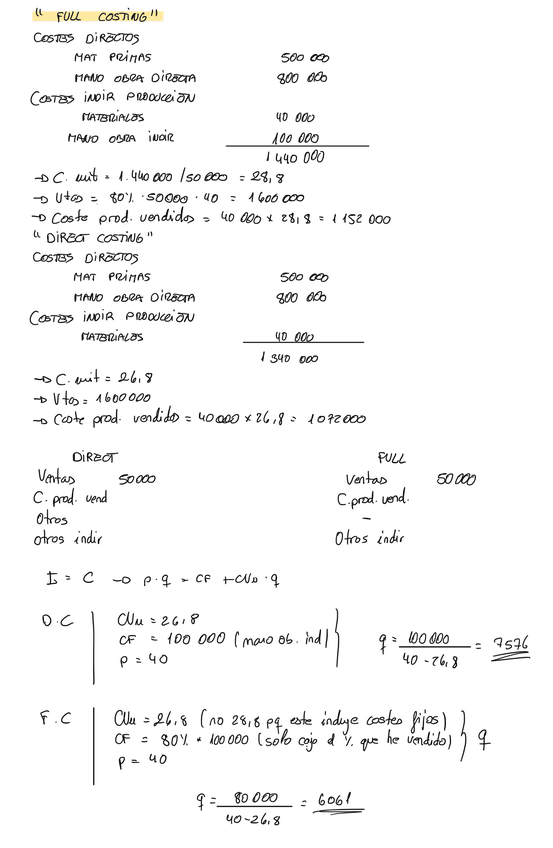 "FULL COSTING"
COSTES DIRECTOS
MAT PRIMAS 500 000
MANO OBRA DIRECTA 800 000
COSTES INDIR PRODUCCIÓN
MATERIALES 40 000
MANO OBRA INDIR 100 000
1 440 000
→ C. unit = 1.440 000 / 50 000 = 28,8
→ Vtas = 80% · 50000 · 40 = 1600 000
→ Coste prod. vendidos = 40 000 x 28,8 = 1 152 000
"DIRECT COSTING"
COSTES DIRECTOS
MAT PRIMAS 500 000
MANO OBRA DIRECTA 800 000
COSTES INDIR PRODUCCIÓN
MATERIALES 40 000
1 340 000
→ C. unit = 26,8
→ Vtas = 1600 000
→ Coste prod. vendidos = 40 000 x 26,8 = 1072 000
DIRECT FULL
Ventas 50000 Ventas 50 000
C. prod. vend C. prod. vend.
Otros -
Otros indir Otros indir
I = C → p · q = CF + CVu · q
D.C CVu = 26,8
CF = 100 000 (mano ob. ind)
p = 40
q = 100 000 / 40 - 26,8 = 7576
F.C CVu = 26,8 (no 28,8 pq este incluye costes fijos)
CF = 80% * 100 000 (solo cojo el % que he vendido) q
p = 40
q = 80 000 / 40 - 26,8 = 6061